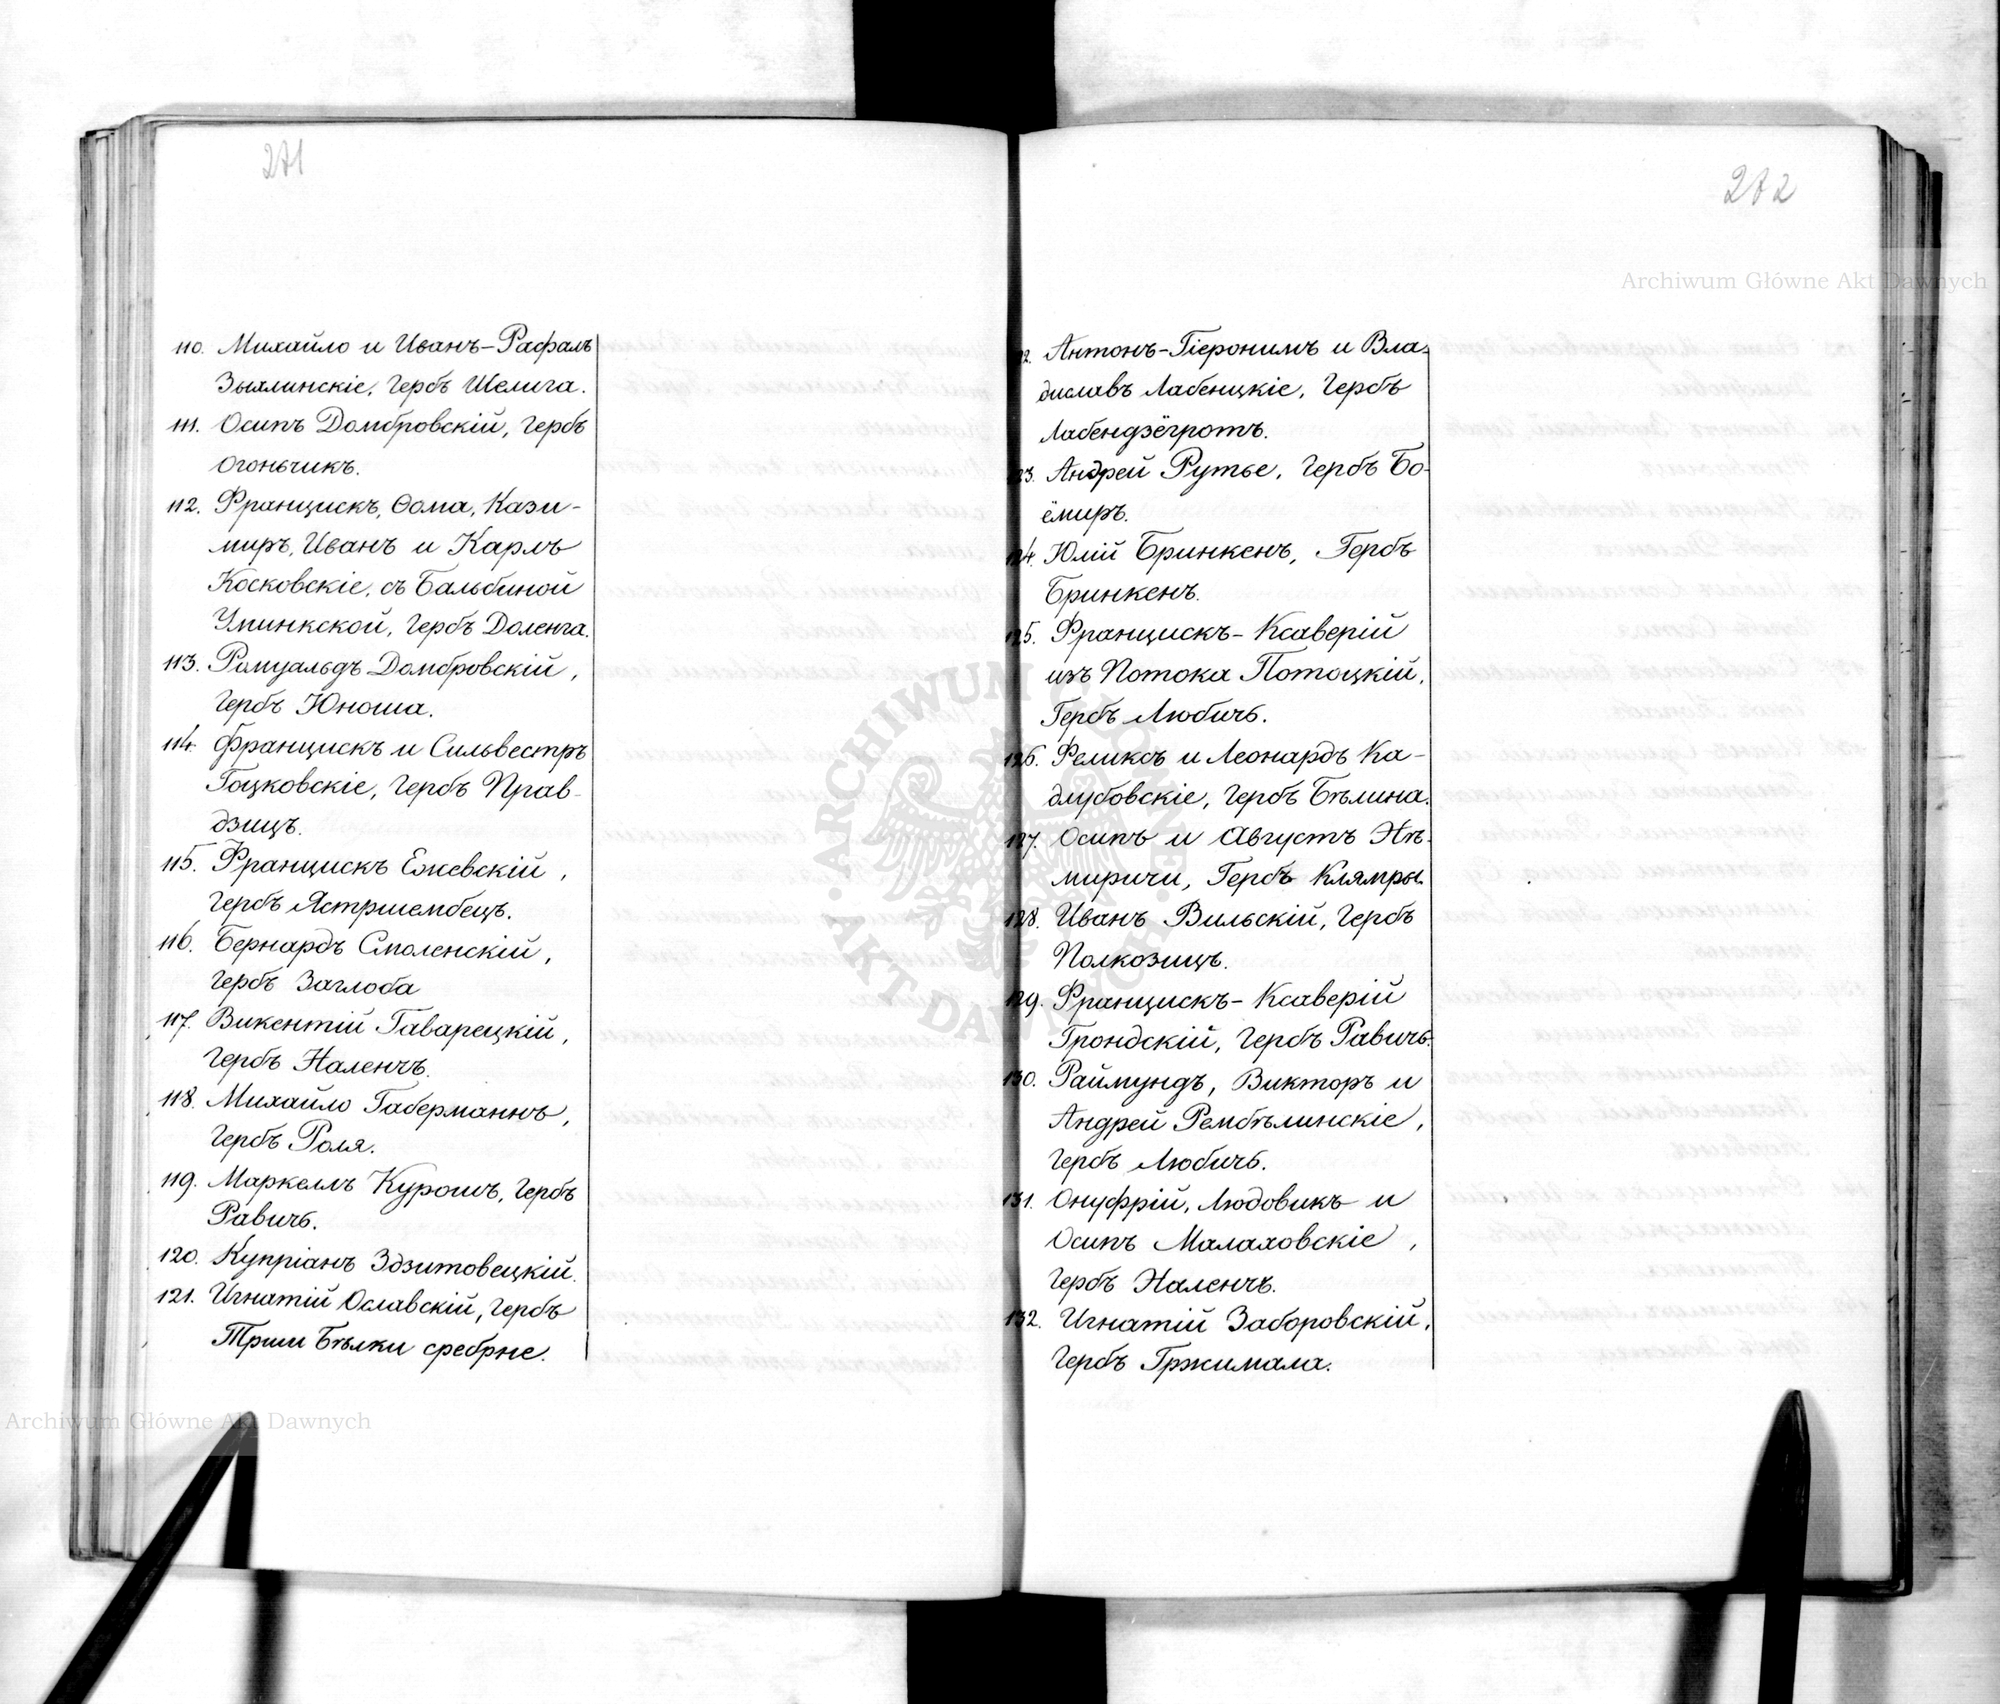 271
110. Михайло и Иванъ-Рафалъ
Зыхлинскіе, Гербъ Шелига.
111. Осипъ Домбровскій, Гербъ
Огоньчикъ.
112. Францискъ, Ѳома, Кази-
миръ, Иванъ и Карлъ
Косковскіе, съ Бальбиной
Улинкской, Гербъ Доленга.
113. Ромуальдъ Домбровскій,
Гербъ Юноша.
114. Францискъ и Сильвестръ
Гоцковскіе, Гербъ Прав-
дзицъ.
115. Францискъ Ежевскій,
Гербъ Ястршембецъ.
116. Бернардъ Смоленскій,
Гербъ Заглоба
117. Викентій Гаварецкій,
Гербъ Наленчъ.
118. Михайло Габерманнъ,
Гербъ Роля.
119. Маркеллъ Курошъ, Гербъ
Равичъ.
120. Купріанъ Здзитовецкій.
121. Игнатій Ославскій, Гербъ
Трши Бѣлки сребрне.
272
Archiwum Główne Akt Dawnych
2. Антонъ-Гіеронимъ и Вла-
диславъ Лабенцкіе, Гербъ
Лабендзёгротъ.
23. Андрей Рутье, Гербъ Бо-
ёмиръ.
24. Юлій Бринкенъ, Гербъ
Бринкенъ.
125. Францискъ-Ксаверій
изъ Потока Потоцкій,
Гербъ Любичъ.
126. Феликсъ и Леонардъ Ка-
длубовскіе, Гербъ Бѣлина.
127. Осипъ и Августъ Нѣ-
миричи, Гербъ Клямры.
128. Иванъ Вильскій, Гербъ
Полкозицъ.
129. Францискъ-Ксаверій
Грондскій, Гербъ Равичъ.
130. Раймундъ, Викторъ и
Андрей Рембѣлинскіе,
Гербъ Любичъ.
131. Онуфрій, Людовикъ и
Осипъ Малаховскіе,
Гербъ Наленчъ.
132. Игнатій Заборовскій,
Гербъ Гржимала.
ARCHIWUM GŁÓWNE
AKT DAWNYCH
Archiwum Główne Akt Dawnych